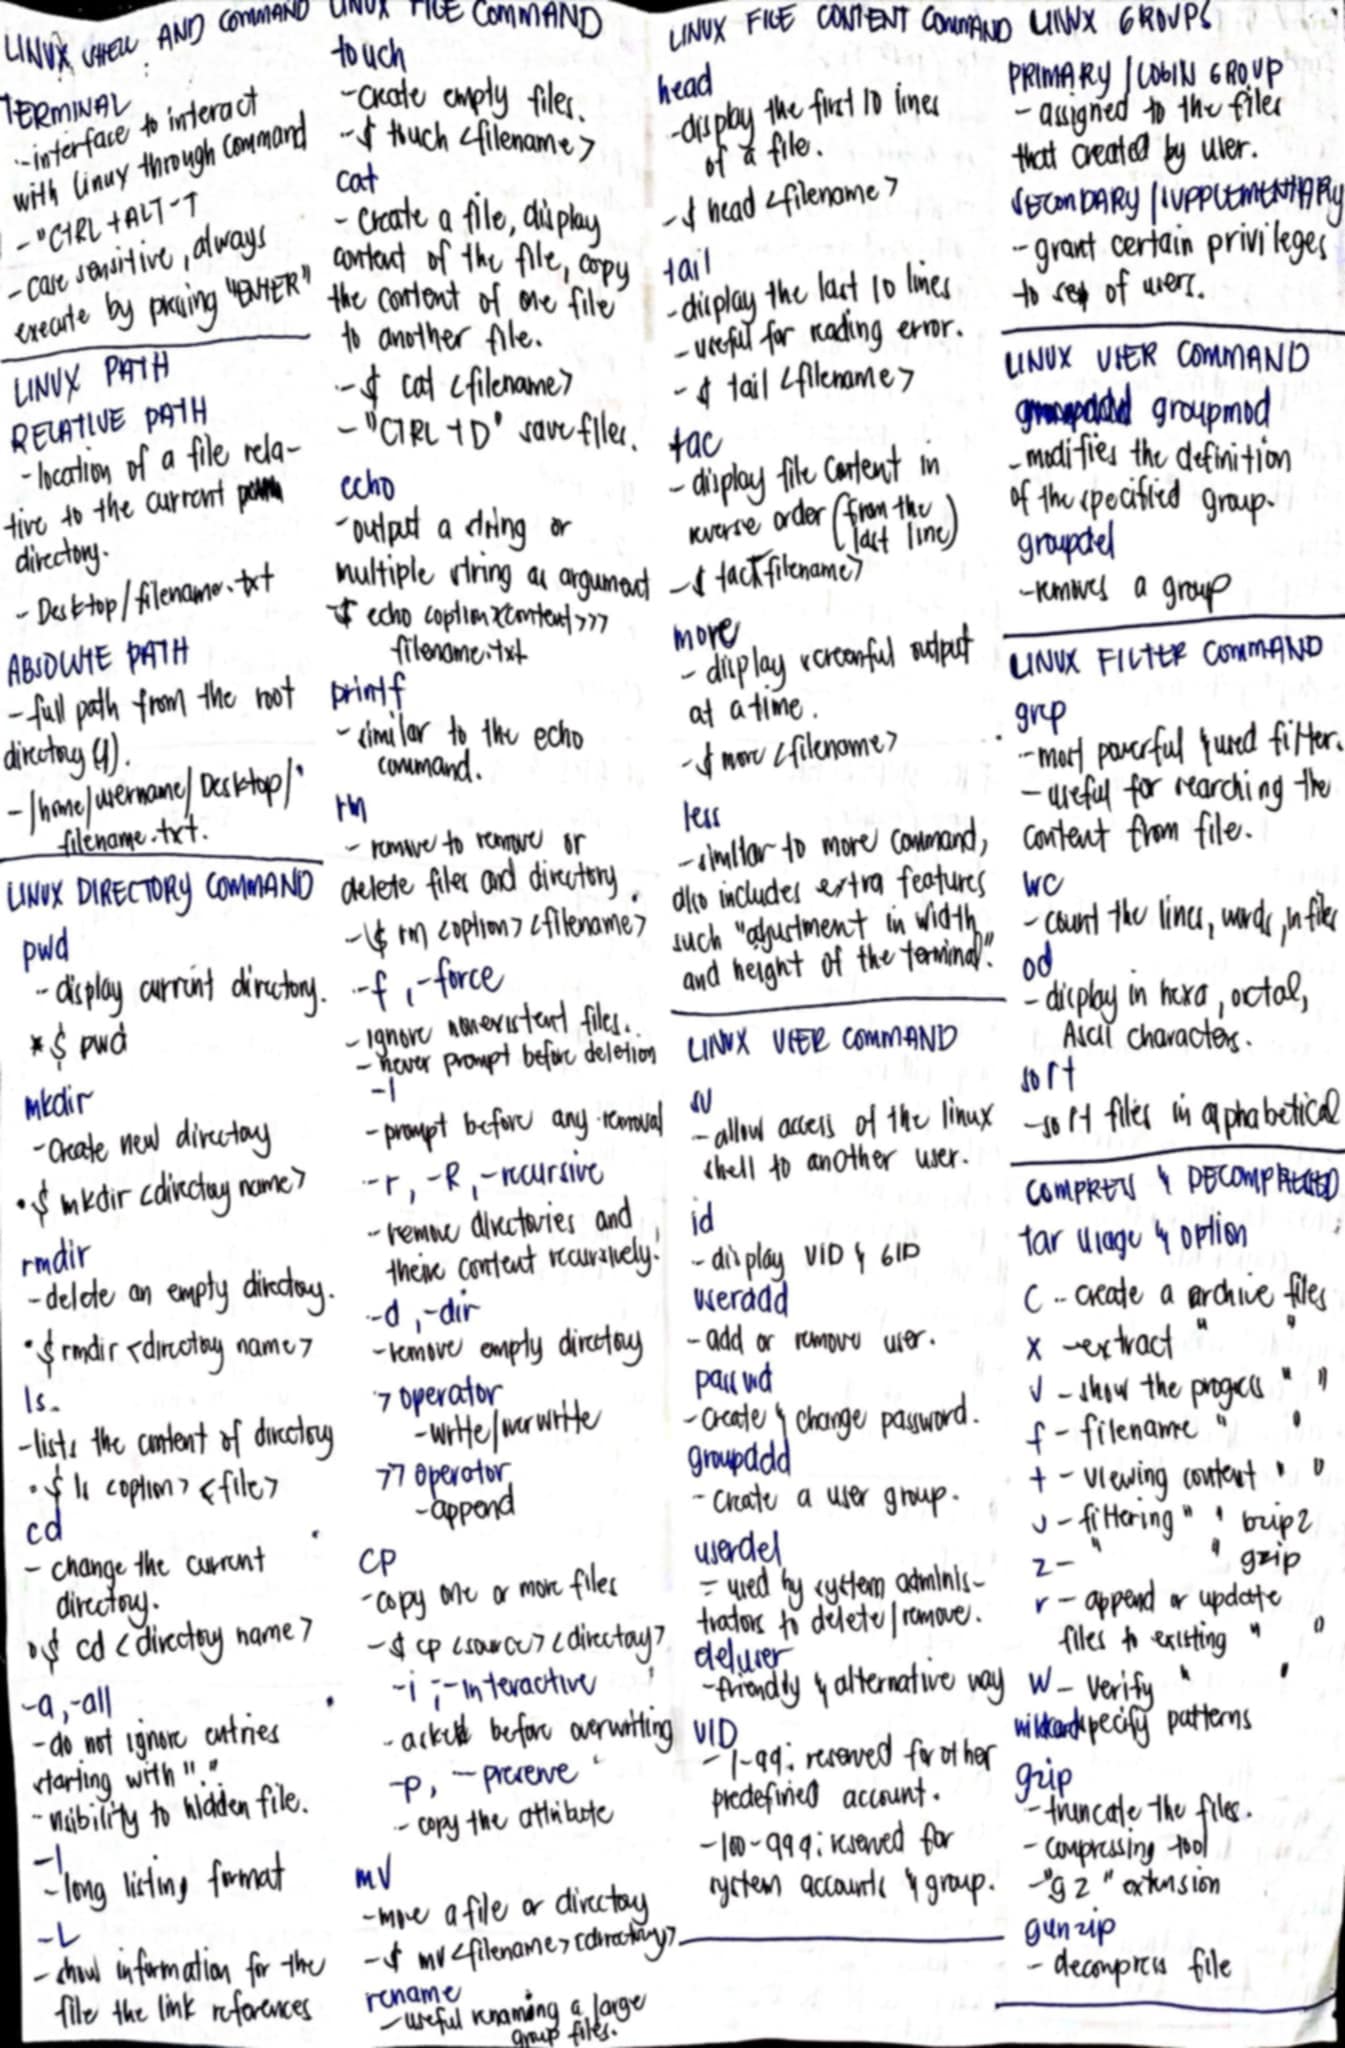 LINUX SHELL AND COMMAND
TERMINAL
- interface to interact
with linux through command
- "CTRL + ALT - T
- case sensitive, always
execute by pressing "ENTER"
LINUX PATH
RELATIVE PATH
- location of a file rela-
tive to the current
directory.
- Desktop/filename.txt
ABSOLUTE PATH
- full path from the root
directory (/).
- /home/username/Desktop/
filename.txt.
LINUX DIRECTORY COMMAND
pwd
- display current directory.
* $ pwd
mkdir
- Create new directory
• $ mkdir <directory name>
rmdir
- delete an empty directory.
• $ rmdir <directory name>
ls.
- lists the content of directory
• $ ls <option> <file>
cd
- change the current
directory.
• $ cd <directory name>
-a, -all
- do not ignore entries
starting with "."
- visibility to hidden file.
-l
- long listing format
-L
- show information for the
file the link references
LINUX FILE COMMAND
touch
- Create empty files.
- $ touch <filename>
cat
- Create a file, display
content of the file, copy
the content of one file
to another file.
- $ cat <filename>
- "CTRL + D" save files.
echo
- output a string or
multiple string as argument
- $ echo <option><content>>>
filename.txt
printf
- similar to the echo
command.
rm
- remove to remove or
delete files and directory
- $ rm <option> <filename>
-f, -force
- ignore nonexistent files.
- never prompt before deletion
-I
- prompt before any removal
-r, -R, -recursive
- remove directories and
their content recursively.
-d, -dir
- remove empty directory
> operator
- write/overwrite
>> operator
- append
CP
- copy one or more files
- $ cp <source> <directory>
-i, -interactive
- asked before overwriting
-p, -preserve
- copy the attribute
mv
- move a file or directory
- $ mv <filename> <directory>
rename
- useful renaming a large
group files.
LINUX FILE CONTENT COMMAND
head
- display the first 10 lines
of a file.
- $ head <filename>
tail
- display the last 10 lines
- useful for reading error.
- $ tail <filename>
tac
- display file content in
reverse order (from the
last line)
- $ tac <filename>
more
- display screenful output
at a time.
- $ more <filename>
less
- similar to more command,
also includes extra features
such "adjustment in width
and height of the terminal".
LINUX USER COMMAND
su
- allow access of the linux
shell to another user.
id
- display UID & GID
useradd
- add or remove user.
passwd
- Create & change password.
groupadd
- Create a user group.
userdel
- used by system adminis-
trators to delete/remove.
deluser
- friendly & alternative way
UID
- 1-99: reserved for other
predefined account.
- 100-999: reserved for
system accounts & group.
LINUX GROUPS
PRIMARY / LOGIN GROUP
- assigned to the files
that created by user.
SECONDARY / SUPPLEMENTARY
- grant certain privileges
to set of users.
LINUX USER COMMAND
groupmod
- modifies the definition
of the specified group.
groupdel
- removes a group
LINUX FILTER COMMAND
grep
- most powerful & used filter.
- useful for searching the
content from file.
wc
- count the lines, words, in files
od
- display in hexa, octal,
Ascii characters.
sort
- sort files in alphabetical
COMPRESS & DECOMPRESSED
tar usage & option
C - create a archive files
x - extract " "
v - show the progress " "
f - filename " "
t - viewing content " "
j - filtering " " bzip2
z - " " gzip
r - append or update
files to existing " "
W - Verify " "
wildcard specify patterns
gzip
- truncate the files.
- compressing tool
- "gz" extension
gunzip
- decompress file